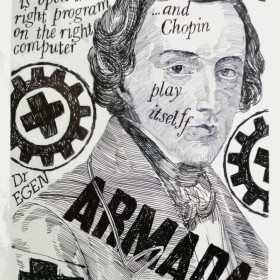 is open th
right program
on the right
computer
...and
Chopin
play
itself.f
Dr
EGEN
ARMADA